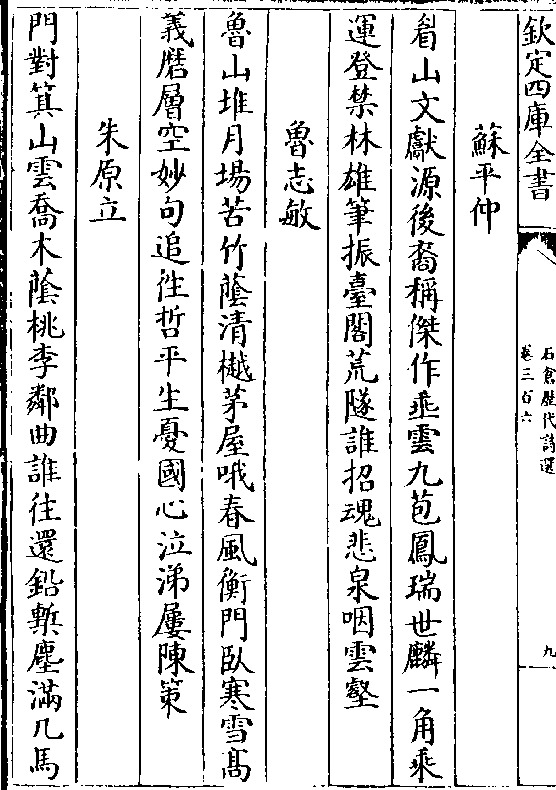 欽定四庫全書
石倉歷代詩選
卷三百六
九
蘇平仲
眉山文獻源後裔稱傑作乘雲九苞鳳瑞世麟一角乘
運登禁林雄筆振臺閣荒隧誰招魂悲泉咽雲壑
魯志敏
魯山堆月場苦竹蔭清樾茅屋哦春風衡門臥寒雪高
義磨層空妙句追徃哲平生憂國心泣涕屢陳策
朱原立
門對箕山雲喬木蔭桃李鄰曲誰往還鉛槧塵滿几馬